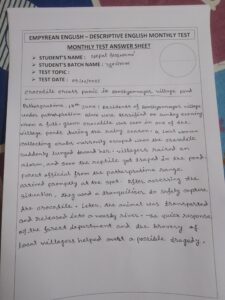 EMPYREAN ENGLISH – DESCRIPTIVE ENGLISH MONTHLY TEST
MONTHLY TEST ANSWER SHEET
➢ STUDENT'S NAME :
➢ STUDENT'S BATCH NAME :
➢ TEST TOPIC :
➢ TEST DATE :
Crocodile creats panic in village pond
Patharpratima, 18th June : Residents of village
under patharpratima block were terrified on sunday evening
when a full-grown crocodile was seen in one of the
village ponds during the rainy season. A local woman
collecting crabs narrowly escaped when the crocodile
suddenly lunged toward her. Villagers raised an
alarm, and soon the reptile got traped in the pond.
Forest official from the patharpratima range
arrived promptly at the spot. After assessing the
situation, they used a tranquilizer to safely capture
the crocodile. Later, the animal was transported
and released into a nearby river. The quick response
of the forest department and the bravery of
local villagers helped avert a possible tragedy.